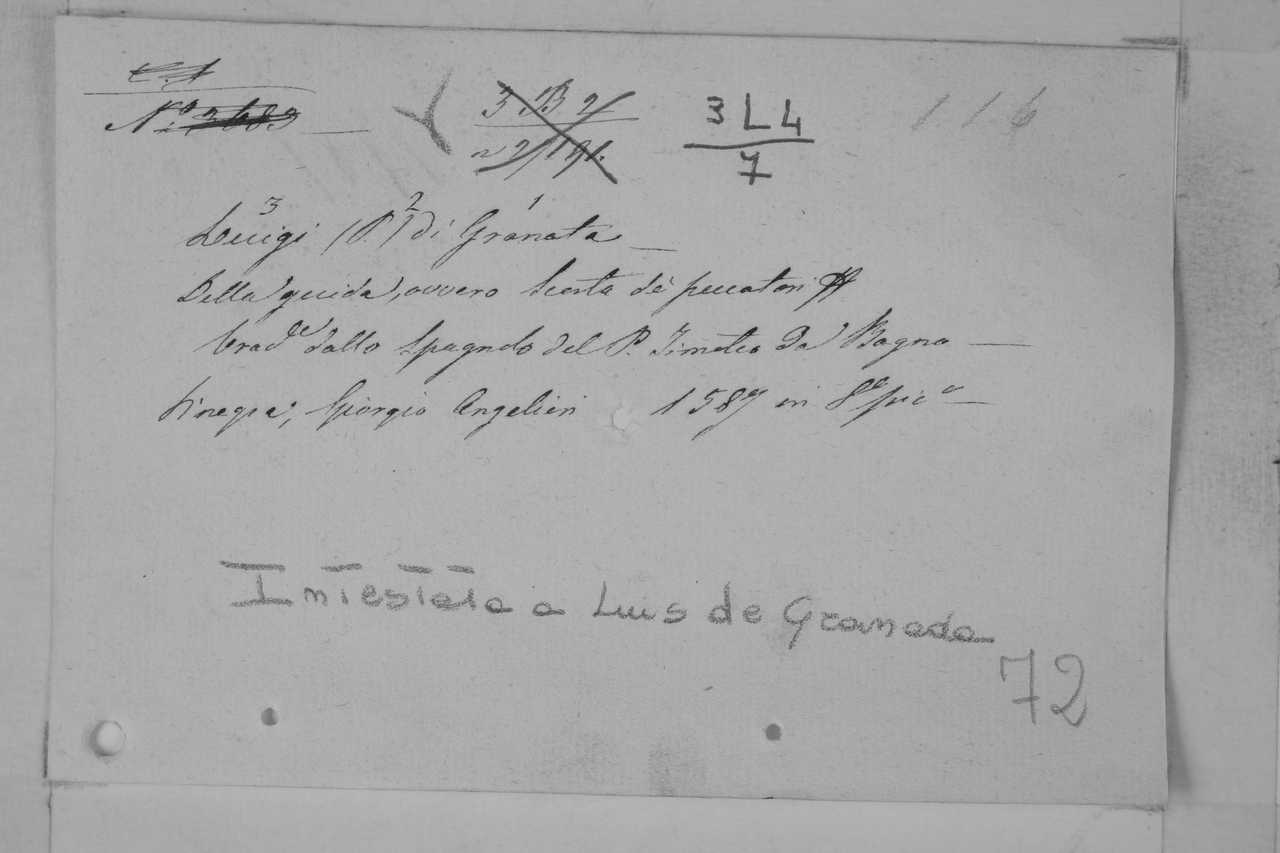 C. A
No 3683
3 B 2
n 2/191.
3 L 4
7
116
3 2 1
Luigi (P.) di Granata
Della guida, ovvero Scorta de' peccatori
trad. dallo Spagnolo del P. Timoteo da Bagno
Vinegia; Giorgio Angelieri 1587 in 8o pic.o
Intestata a Luis de Granada
72